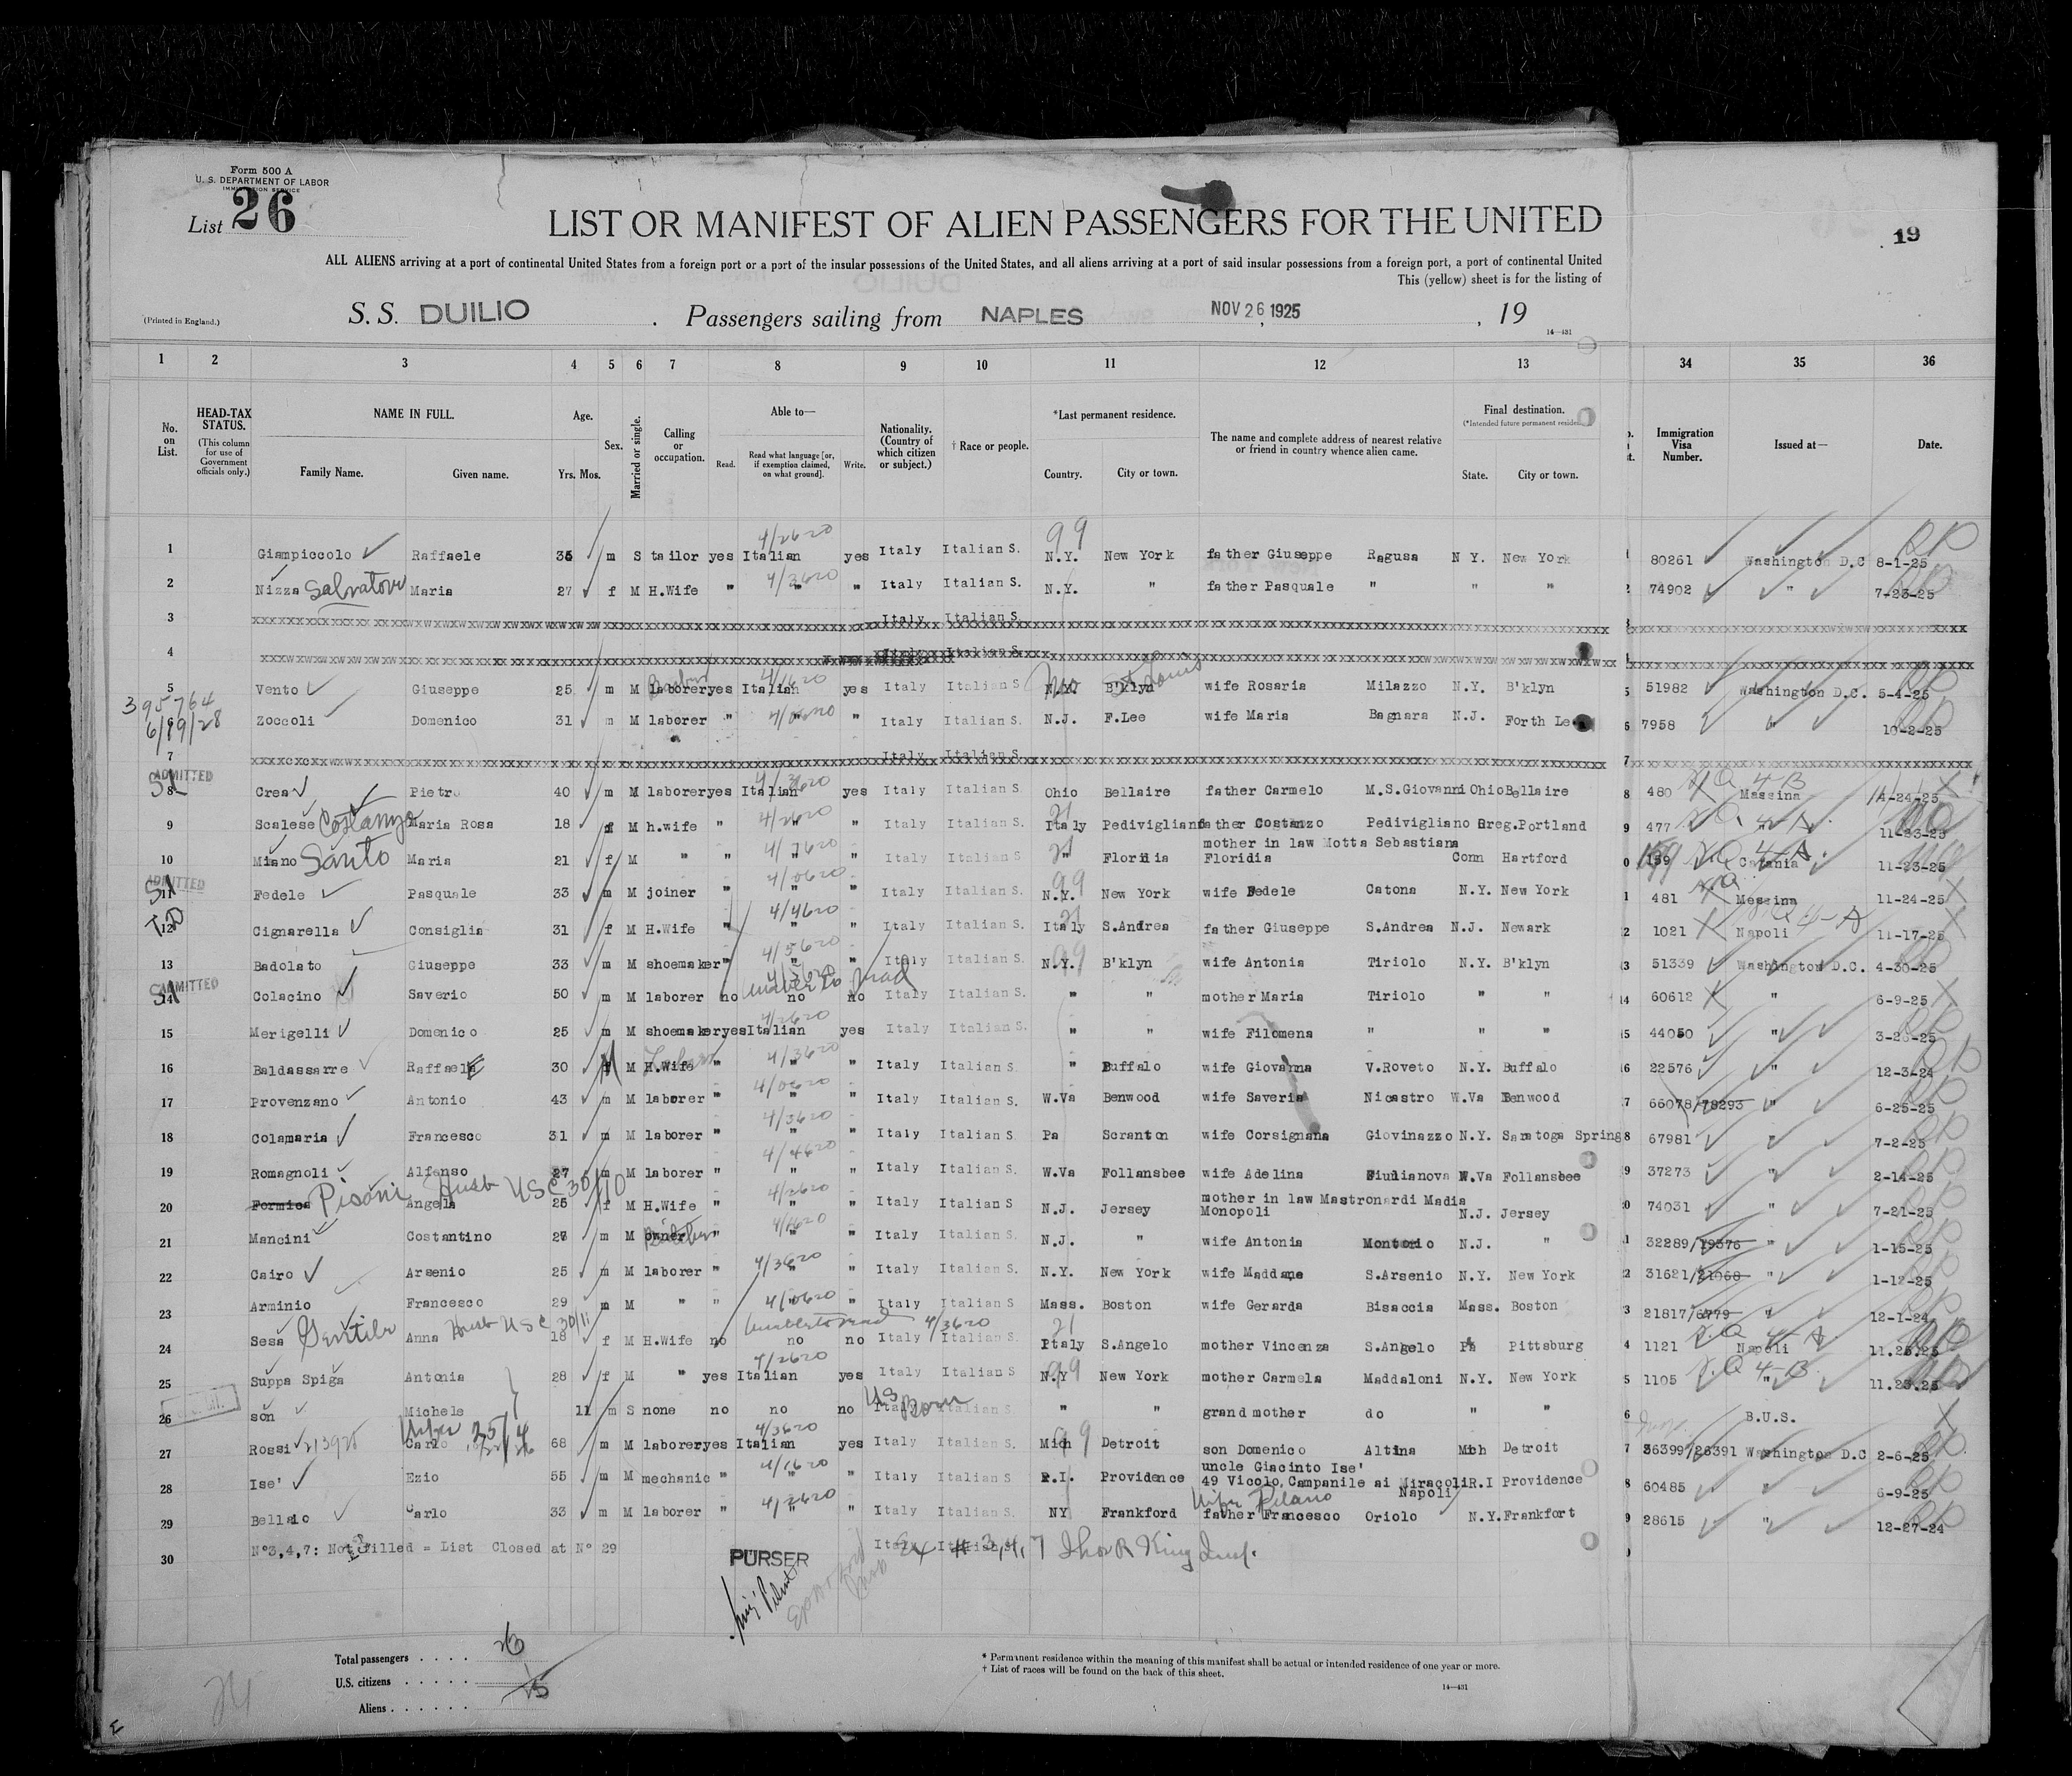 Form 500 A
U. S. DEPARTMENT OF LABOR
IMMIGRATION SERVICE
List 26
LIST OR MANIFEST OF ALIEN PASSENGERS FOR THE UNITED
19
ALL ALIENS arriving at a port of continental United States from a foreign port or a port of the insular possessions of the United States, and all aliens arriving at a port of said insular possessions from a foreign port, a port of continental United
This (yellow) sheet is for the listing of
(Printed in England.)
S. S. DUILIO . Passengers sailing from NAPLES NOV 26 1925 , 19
14—431
1 2 3 4 5 6 7 8 9 10 11 12 13 34 35 36
No. on List.
HEAD-TAX STATUS.
(This column for use of Government officials only.)
NAME IN FULL.
Family Name. Given name.
Age.
Yrs. Mos.
Sex.
Married or single.
Calling or occupation.
Able to—
Read. Read what language [or, if exemption claimed, on what ground]. Write.
Nationality. (Country of which citizen or subject.)
† Race or people.
*Last permanent residence.
Country. City or town.
The name and complete address of nearest relative or friend in country whence alien came.
Final destination.
(*Intended future permanent residence
State. City or town.
Immigration Visa Number.
Issued at—
Date.
1 Giampiccolo Raffaele m S tailor yes Italian 4/2620 yes Italy Italian S. 99 N.Y. New York father Giuseppe Ragusa N Y. New York 80261 Washington D.C 8-1-25
2 Nizza Salvatore Maria 27 f M H.Wife " 4/3620 " " Italy Italian S. N.Y. " father Pasquale " " " 74902 " 7-23-25
3 Italy Italian S.
4 Italy Italian S.
5 Vento Giuseppe 25 m M laborer yes Italian 4/1620 yes Italy Italian S N.Y. B'klyn St Louis wife Rosaria Milazzo N.Y. B'klyn 51982 Washington D.C. 5-4-25
395764
6/19/28
6 Zoccoli Domenico 31 m M laborer " " " Italy Italian S. N.J. F.Lee wife Maria Bagnara N.J. Forth Lee 7958 " 10-2-25
7 Italy Italian S.
ADMITTED
SI
8 Crea Pietro 40 m M laborer yes Italian 4/3620 yes Italy Italian S. Ohio Bellaire father Carmelo M.S.Giovanni Ohio Bellaire 480 Messina 11-24-25
9 Scalese Costanzo Maria Rosa 18 f M h.wife " 4/2620 " " Italy Italian S. 21 Italy Pedivigliano father Costanzo Pedivigliano Oreg. Portland 477 " 11-23-25
10 Miano Santo Maria 21 f M " " 4/7620 " " Italy Italian S 21 " Floridia mother in law Motta Sebastiana
Floridia Conn Hartford 159 Catania 11-23-25
ADMITTED
SI
11 Fedele Pasquale 33 m M joiner " 4/0620 " " Italy Italian S. 99 N.Y. New York wife Fedele Catona N.Y. New York 481 Messina 11-24-25
TD
12 Cignarella Consiglia 31 f M H.Wife " 4/4620 " " Italy Italian S. 21 Italy S.Andrea father Giuseppe S.Andrea N.J. Newark 1021 Napoli 11-17-25
13 Badolato Giuseppe 33 m M shoemaker " 4/5620 " " Italy Italian S. 99 N.Y. B'klyn wife Antonia Tiriolo N.Y. B'klyn 51339 Washington D.C. 4-30-25
ADMITTED
SI
14 Colacino Saverio 50 m M laborer no unable to read no no Italy Italian S. " " mother Maria Tiriolo " " 60612 " 6-9-25
15 Merigelli Domenico 25 m M shoemaker yes Italian 4/2620 yes Italy Italian S. " " wife Filomena " " " 44050 " 3-26-25
16 Baldassarre Raffaele 30 M M H.Wife Labor " 4/3620 " " Italy Italian S. " Buffalo wife Giovanna V.Roveto N.Y. Buffalo 22576 " 12-3-24
17 Provenzano Antonio 43 m M laborer " 4/0620 " " Italy Italian S. W.Va Benwood wife Saveria Nicastro W.Va Benwood 66078/78293 " 6-25-25
18 Colamaria Francesco 31 m M laborer " 4/3620 " " Italy Italian S Pa Scranton wife Corsignana Giovinazzo N.Y. Saratoga Spring 67981 " 7-2-25
19 Romagnoli Alfonso 27 m M laborer " 4/4620 " " Italy Italian S. W.Va Follansbee wife Adelina Giulianova W.Va Follansbee 37273 " 2-14-25
20 Formica Pisoni Husb USC 30/10 Angela 25 f M H.Wife " 4/2620 " " Italy Italian S N.J. Jersey mother in law Mastronardi Madia
Monopoli N.J. Jersey 74031 " 7-21-25
21 Mancini Costantino m M owner " 4/1620 " " Italy Italian S. N.J. " wife Antonia Montorio N.J. " 32289/19376 " 1-15-25
22 Cairo Arsenio 25 m M laborer " 4/3620 " " Italy Italian S. N.Y. New York wife Maddane S.Arsenio N.Y. New York 31621/21068 " 1-12-25
23 Arminio Francesco 29 m M " " 4/0620 " " Italy Italian S Mass. Boston wife Gerarda Bisaccia Mass. Boston 21817/6779 " 12-1-24
24 Sesa Gentile Anna Husb USC 30/11 18 f M H.Wife no unable to read no no 4/3620 Italy Italian S. 21 Italy S.Angelo mother Vincenza S.Angelo Pa Pittsburg 1121 Napoli 11.25.25
25 Suppa Spiga Antonia 28 f M " yes Italian 4/2620 yes Italy Italian S 99 N.Y New York mother Carmela Maddaloni N.Y. New York 1105 " 11.25.25
26 son Michele 11 m S none no no no US Born Italy Italian S. " " grand mother do " " B.U.S.
27 Rossi Carlo 68 m M laborer yes Italian 4/3620 yes Italy Italian S. 99 Mich Detroit son Domenico Altina Mich Detroit 36399/26391 Washington D.C 2-6-25
28 Ise' Ezio 55 m M mechanic " 4/1620 " " Italy Italian S R.I. Providence uncle Giacinto Ise'
49 Vicolo Campanile ai Miracoli R.I Providence
Napoli 60485 " 6-9-25
29 Bellaio Carlo 33 m M laborer " 4/2620 " " Italy Italian S. NY Frankford father Francesco Oriolo N.Y. Frankfort 28615 " 12-27-24
30 N°3,4,7: Not filled = List Closed at N° 29 Italy Italian S. Ex # 3,4,7 Thos R King Insp.
PURSER
Total passengers . . . . 26
U.S. citizens . . . . . .
Aliens . . . . . .
* Permanent residence within the meaning of this manifest shall be actual or intended residence of one year or more.
† List of races will be found on the back of this sheet.
14—431